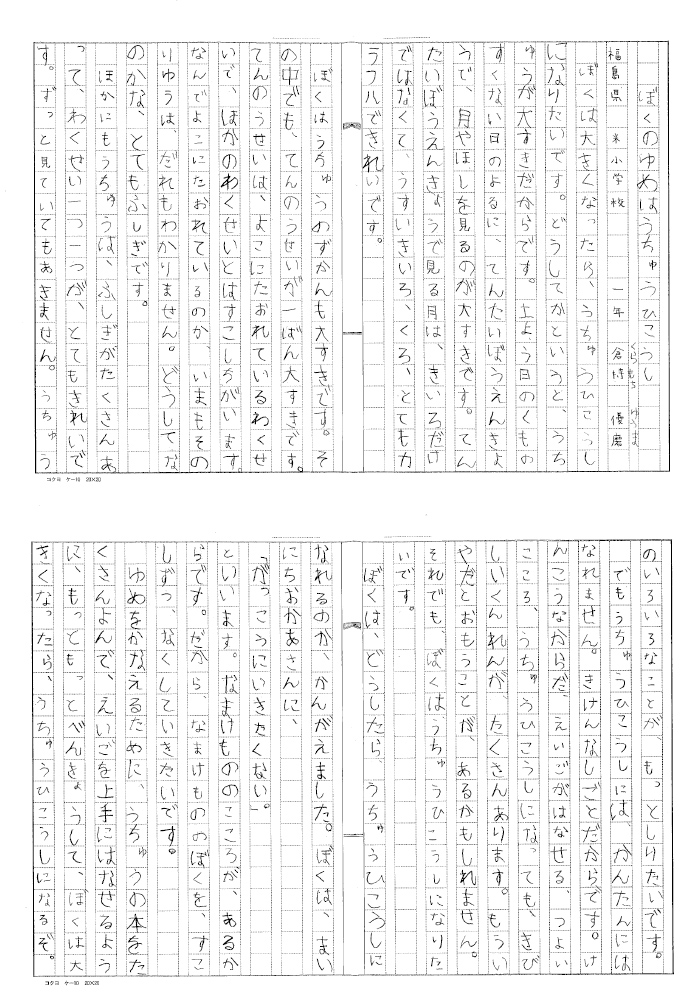 ぼくのゆめはうちゅうひこうし
福島県　米小学校　一年　倉持　優磨
くらもち　ゆうま
ぼくは大きくなったら、うちゅうひこうし
になりたいです。どうしてかというと、うち
ゅうが大すきだからです。土よう日のくもの
すくない日のよるに、てんたいぼうえんきょ
うで、月やほしを見るのが大すきです。てん
たいぼうえんきょうで見る月は、きいろだけ
ではなくて、うすいきいろ、くろ、とてもカ
ラフルできれいです。
ぼくはうちゅうのずかんも大すきです。そ
の中でも、てんのうせいが一ばん大すきです。
てんのうせいは、よこにたおれているわくせ
いで、ほかのわくせいとはすこしちがいます。
なんでよこにたおれているのか、いまもその
りゆうは、だれもわかりません。どうしてな
のかな、とてもふしぎです。
ほかにもうちゅうは、ふしぎがたくさんあ
って、わくせい一つ一つが、とてもきれいで
す。ずっと見ていてもあきません。うちゅう
コクヨ　ケー10　20×20
のいろいろなことが、もっとしりたいです。
でもうちゅうひこうしには、かんたんには
なれません。きけんなしごとだからです。け
んこうなからだ、えいごがはなせる、つよい
こころ、うちゅうひこうしになっても、きび
しいくんれんが、たくさんあります。もうい
やだとおもうことが、あるかもしれません。
それでも、ぼくはうちゅうひこうしになりた
いです。
ぼくは、どうしたら、うちゅうひこうしに
なれるのか、かんがえました。ぼくは、まい
にちおかあさんに、
「がっこうにいきたくない」。
といいます。なまけもののこころが、あるか
らです。だから、なまけもののぼくを、すこ
しずつ、なくしていきたいです。
ゆめをかなえるために、うちゅうの本をた
くさんよんで、えいごを上手にはなせるよう
に、もっともっとべんきょうして、ぼくは大
きくなったら、うちゅうひこうしになるぞ。
コクヨ　ケー10　20×20